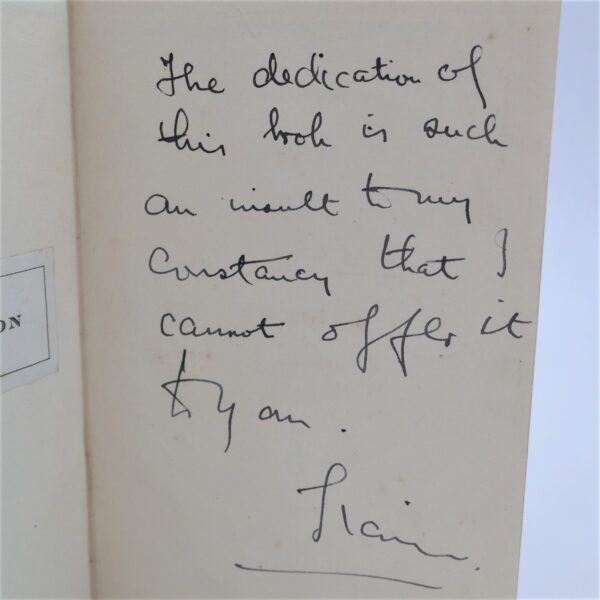 ON
The dedication of
this book is such
an insult to my
Constancy that I
cannot offer it
to you.